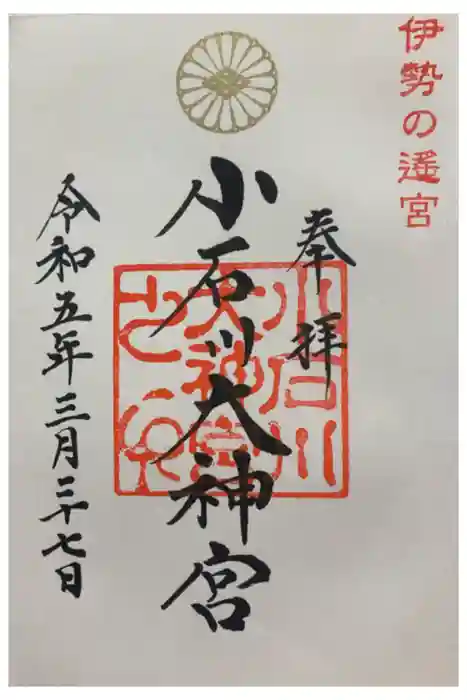 伊勢の遙宮
奉拝
小石川大神宮
小石川
大神宮
令和五年三月二十七日